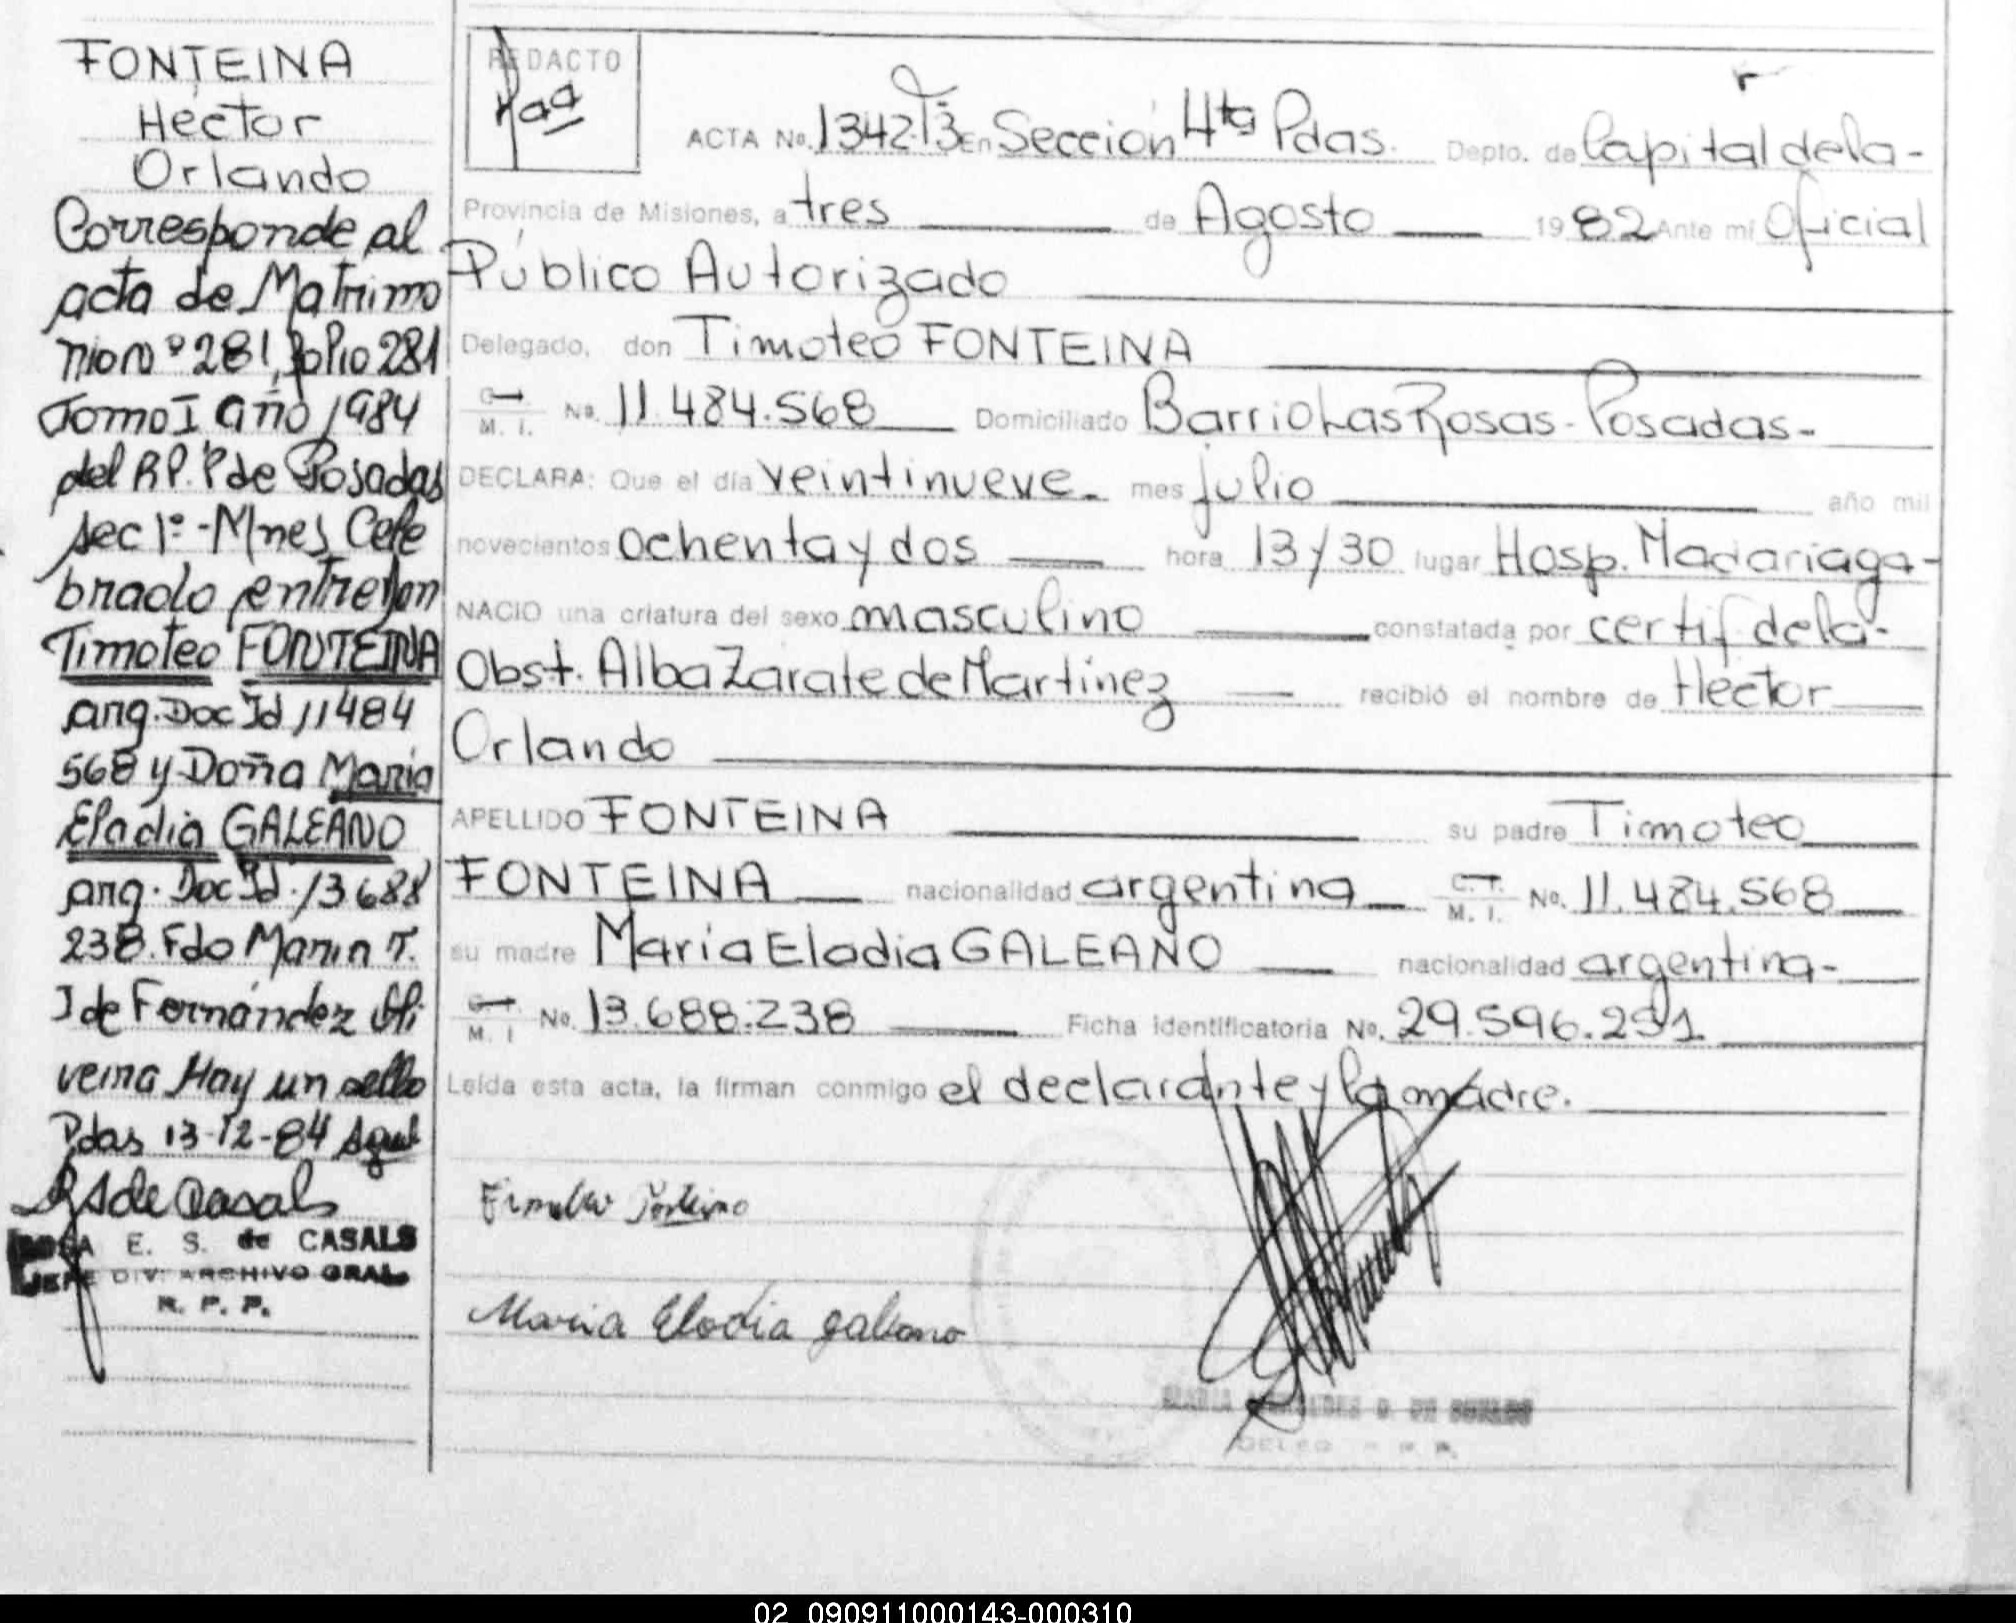 FONTEINA
Héctor
Orlando
Corresponde al
acta de Matrimo
nio Nº 281, folio 281
Tomo I año 1984
del R.P. P de Posadas
sec 1º - Mnes Cele
brado entre Don
Timoteo FONTEINA
arg. Doc Id 11484
568 y Doña Maria
Eladia GALEANO
arg. Doc Id. 13688
238. Fdo Maria T.
J de Fernández Oli
veira Hay un sello
Pdas 13-12-84
de Casals
ROSA E. S. de CASALS
JEFE DIV. ARCHIVO GRAL.
R. P. P.
REDACTO
ACTA No. 1342 T3 En Sección 4ta Pdas. Depto. de Capital de la-
Provincia de Misiones, a tres de Agosto 1982 Ante mí Oficial
Público Autorizado
Delegado, don Timoteo FONTEINA
C. I. M. I. No. 11.484.568 Domiciliado Barrio Las Rosas - Posadas-
DECLARA: Que el día veintinueve- mes julio año mil
novecientos ochenta y dos hora 13/30 lugar Hosp. Madariaga-
NACIO una criatura del sexo masculino constatada por certif. de la-
Obst. Alba Zarate de Martínez recibió el nombre de Héctor
Orlando
APELLIDO FONTEINA su padre Timoteo
FONTEINA nacionalidad argentina C. I. M. I. No. 11.484.568
su madre María Eladia GALEANO nacionalidad argentina-
C. I. M. I No. 13.688.238 Ficha identificatoria No. 29.596.291
Leída esta acta, la firman conmigo el declarante y la madre.
Maria Elodia galeano
02_090911000143-000310